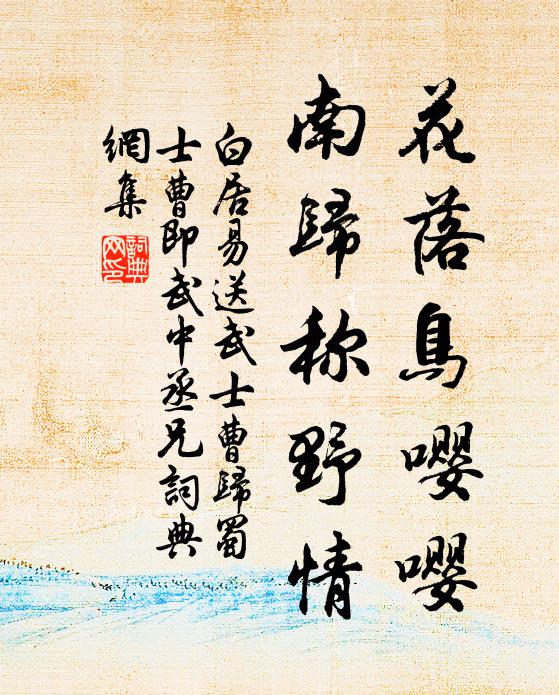 花落鳥嚶嚶
南歸称野情
白居易送武士曹歸蜀
士曹即武中丞兄詞典
網集
詞典
网印